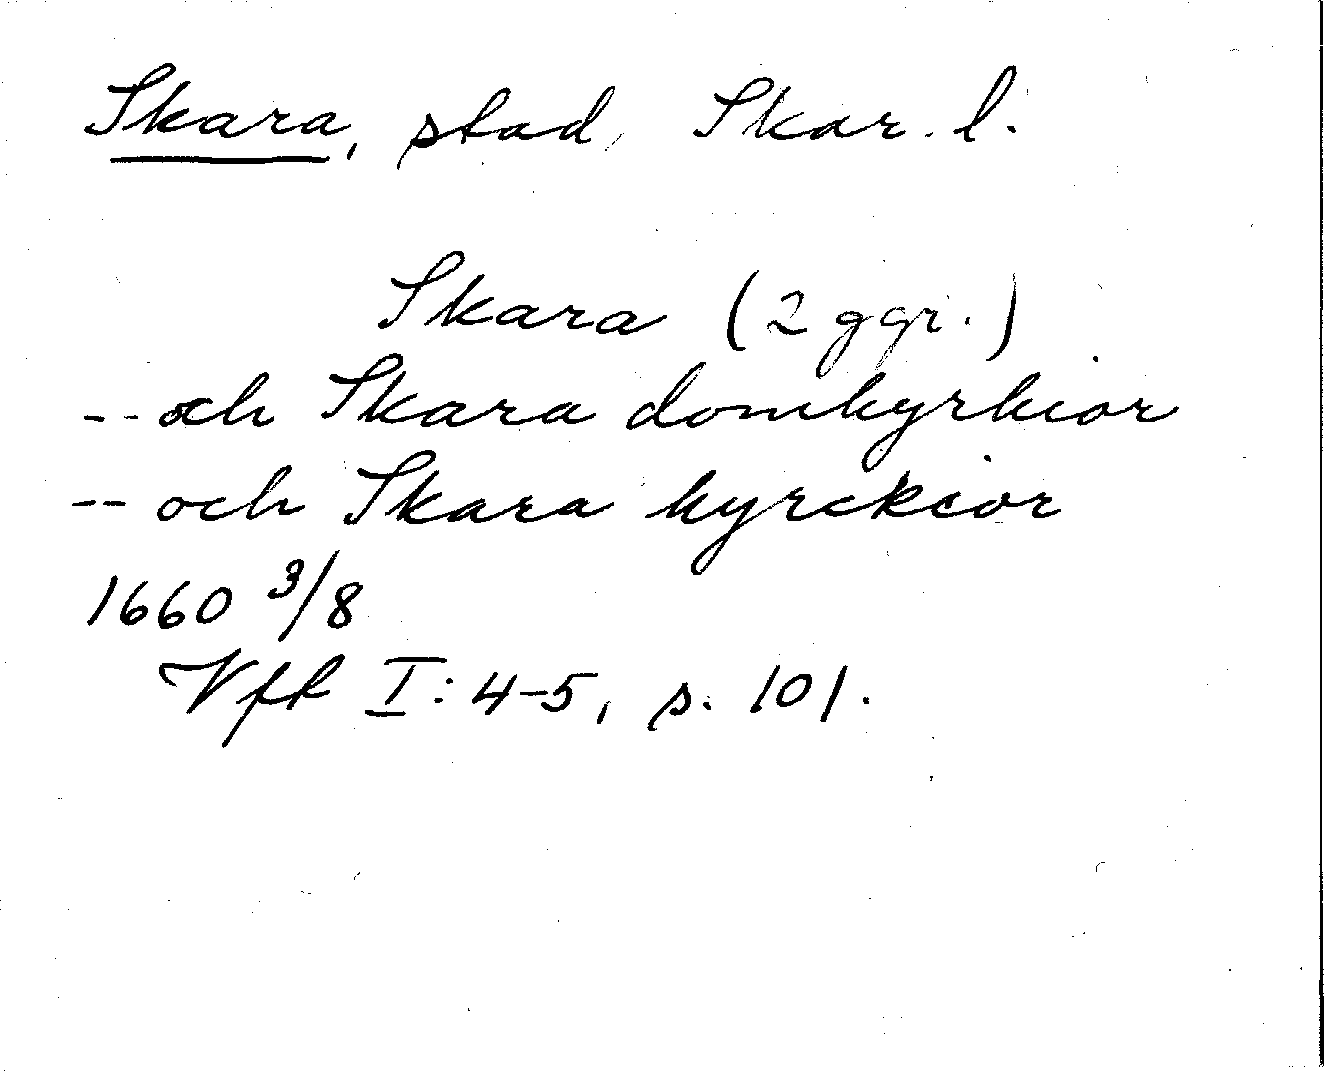 Skara, stad, Skar. l.
Skara (2 ggr.)
-- och Skara domkyrkior
-- och Skara kyrckior
1660 3/8
Vfk I: 4-5, s. 101.